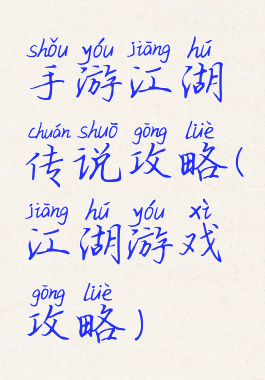 shǒu yóu jiāng hú
手游江湖
chuán shuō gōng lüè
传说攻略(
jiāng hú yóu xì
江湖游戏
gōng lüè
攻略)